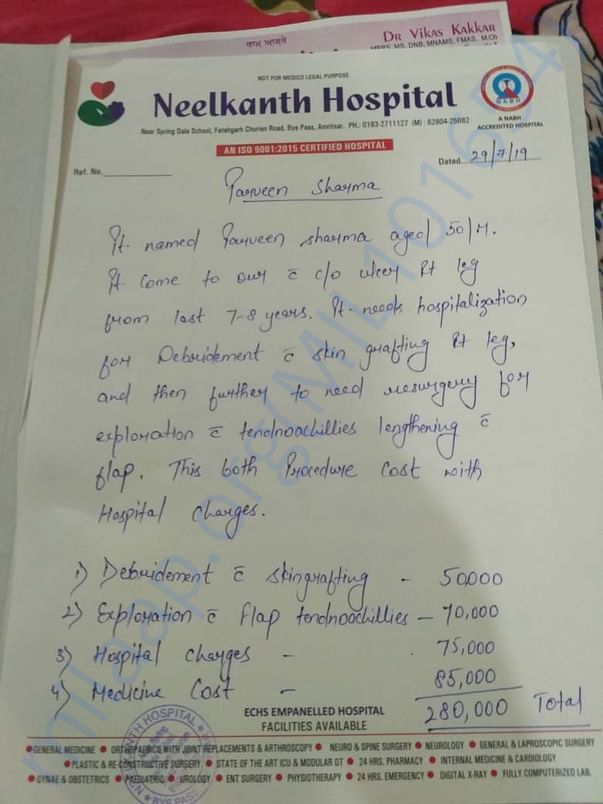 ਬਾਘ ਆਸਰੇ
DR VIKAS KAKKAR
MBBS, MS, DNB, MNAMS, FMAS, M.Ch
NOT FOR MEDICO LEGAL PURPOSE
Neelkanth Hospital
NABH
A NABH
ACCREDITED HOSPITAL
Near Spring Dale School, Fatehgarh Churian Road, Bye Pass, Amritsar. PH.: 0183-2711127 (M) : 62804-25662
AN ISO 9001:2015 CERTIFIED HOSPITAL
Ref. No.
Dated 29/7/19
Parveen Sharma
Pt. named Parveen sharma aged/50/M.
Pt come to our c̄ c/o ulcer Rt leg
from last 7-8 years. Pt. needs hospitalization
for Debridement c̄ skin grafting Rt leg,
and then further to need resurgery for
exploration c̄ tendnoachillies lengthening c̄
flap. This both Procedure cost with
Hospital charges.
1) Debridement c̄ skingrafting - 50,000
2) Exploration c̄ flap tendnoochillies - 70,000
3) Hospital charges - 75,000
4) Medicine Cost - 85,000
280,000 Total
ECHS EMPANELLED HOSPITAL
FACILITIES AVAILABLE
• GENERAL MEDICINE • ORTHOPAEDICS WITH JOINT REPLACEMENTS & ARTHROSCOPY • NEURO & SPINE SURGERY • NEUROLOGY • GENERAL & LAPROSCOPIC SURGERY
• PLASTIC & RE-CONSTRUCTIVE SURGERY • STATE OF THE ART ICU & MODULAR OT • 24 HRS. PHARMACY • INTERNAL MEDICINE & CARDIOLOGY
• GYNAE & OBSTETRICS • PAEDIATRIC • UROLOGY • ENT SURGERY • PHYSIOTHERAPY • 24 HRS. EMERGENCY • DIGITAL X-RAY • FULLY COMPUTERIZED LAB.